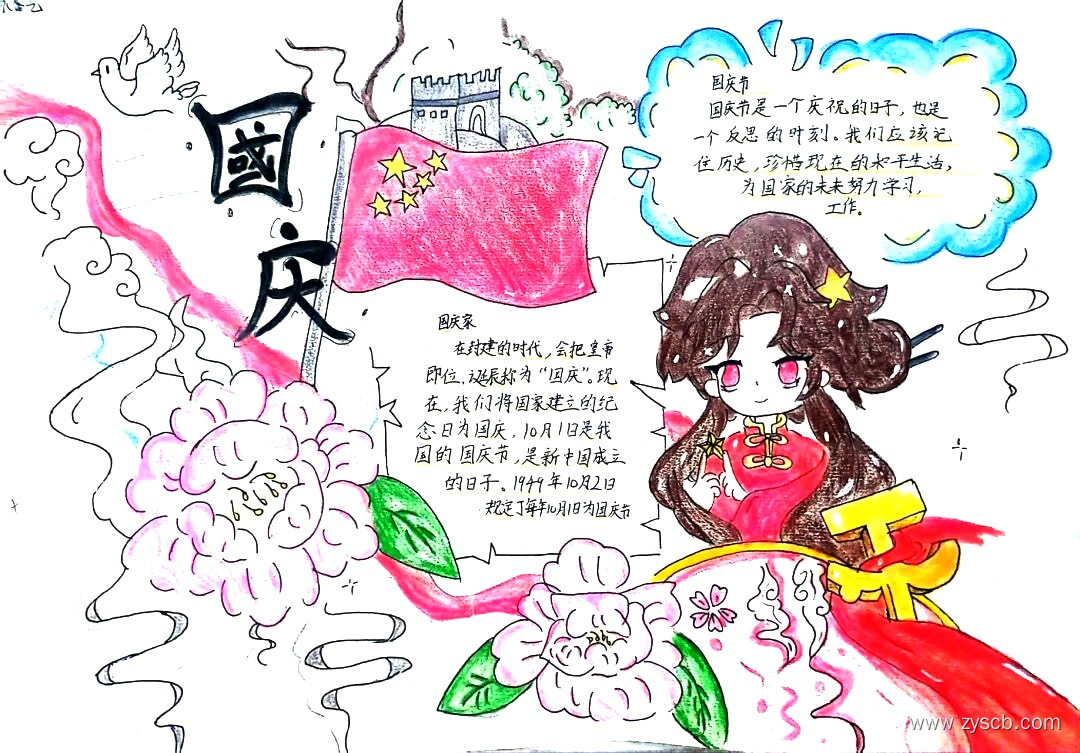 國
庆
国庆节
国庆节是一个庆祝的日子，也是
一个反思的时刻。我们应该记
住历史，珍惜现在的和平生活，
为国家的未来努力学习，
工作。
国庆家
在封建的时代，会把皇帝
即位、诞辰称为“国庆”。现
在，我们将国家建立的纪
念日为国庆，10月1日是我
国的国庆节，是新中国成立
的日子。1949年10月2日
规定了每年10月1日为国庆节
www.zyscb.com